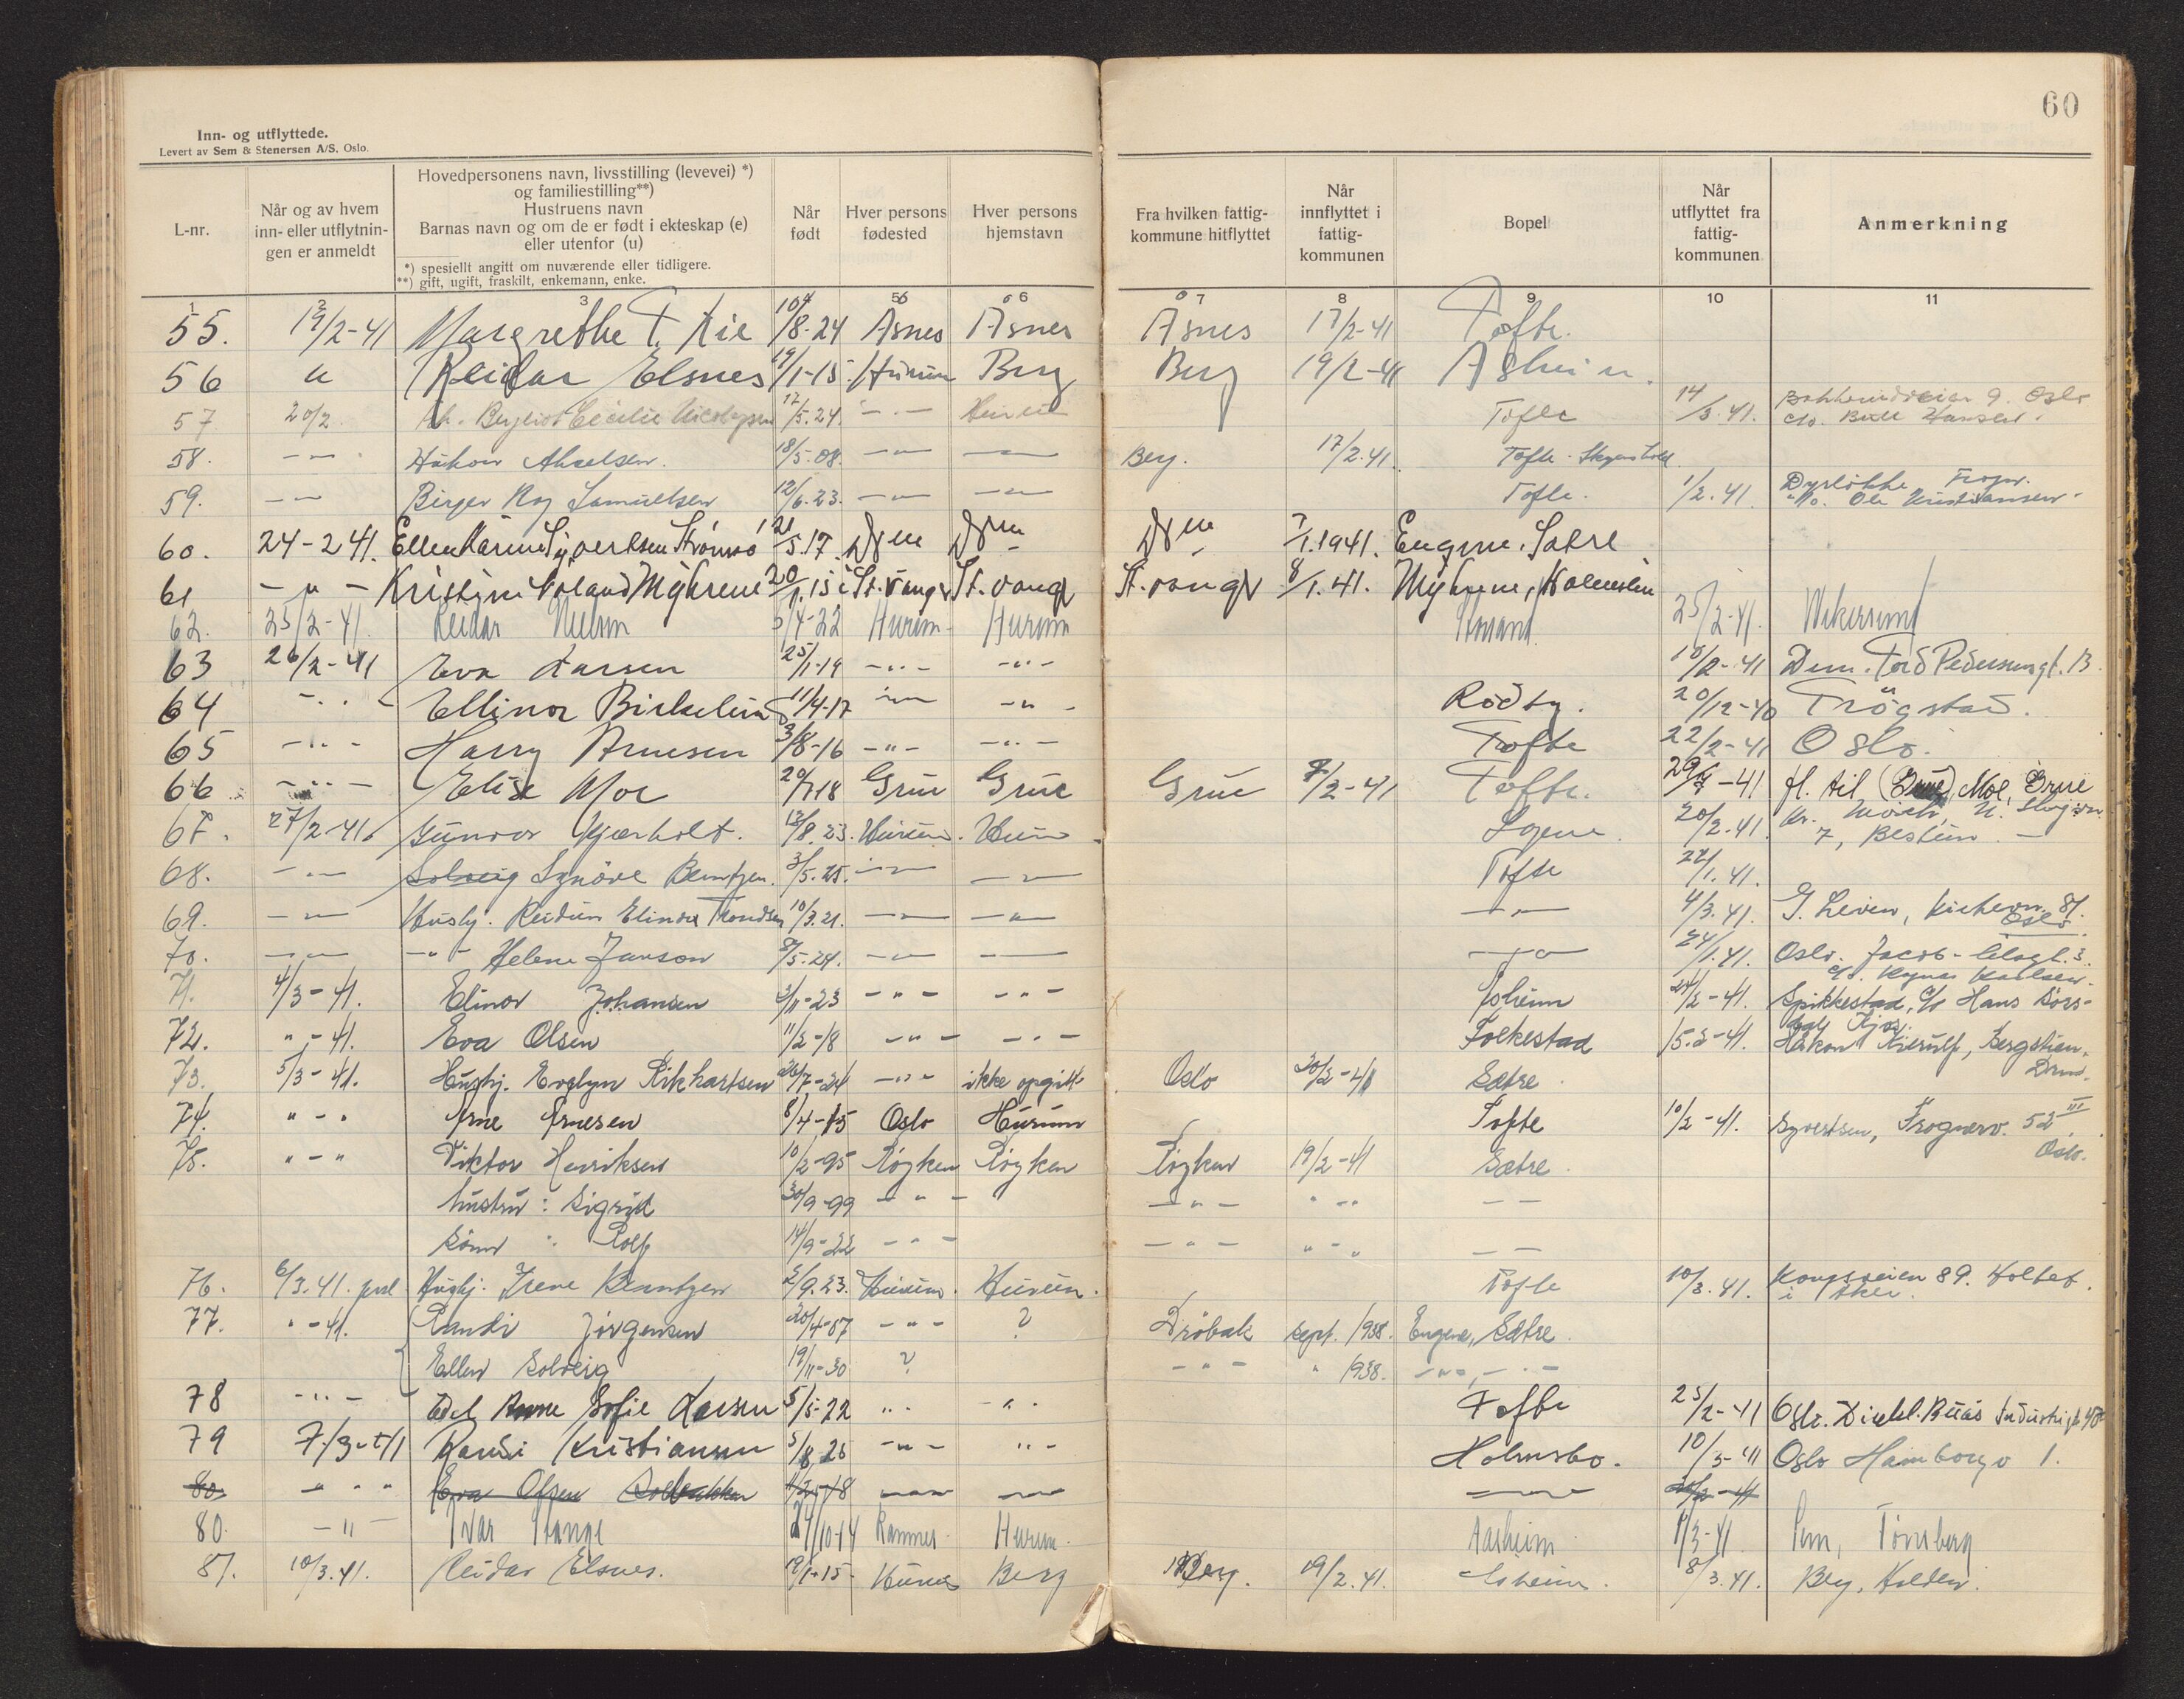 60
Inn- og utflyttede.
Levert av Sem & Stenersen A/S. Oslo.
L-nr.
Når og av hvem inn- eller utflytningen er anmeldt
Hovedpersonens navn, livsstilling (levevei) *)
og familiestilling**)
Hustruens navn
Barnas navn og om de er født i ekteskap (e)
eller utenfor (u)
*) spesiellt angitt om nuværende eller tidligere.
**) gift, ugift, fraskilt, enkemann, enke.
Når født
Hver persons fødested
Hver persons hjemstavn
Fra hvilken fattigkommune hitflyttet
Når innflyttet i fattigkommunen
Bopel
Når utflyttet fra fattigkommunen
Anmerkning
1 2 3 4 5 6 7 8 9 10 11
55. 19/2-41 Margrethe T. Lie 10/8-24 Åsnes Åsnes Åsnes 17/2-41 Tofte.
56 " Reidar Elsnes 19/1-15 Hurum Berg Berg 19/2-41 Åsheim.
57 20/2 Bergliot Cecilie Nicolaysen 12/5.24. -"- Hurum Tofte 14/3.41. 9. Oslo
c/o. Bull Hansen.
58. -"- Håkon Akselsen. 18/5-08. -"- -"- Berg. 17/2.41. Tofte.
59. -"- Birger Roy Samuelsen 12/6.23. -"- -"- Tofte. 1/2.41. Dyrløkke Frogn.
c/o. Ole Kristiansen.
60. 24-2 41. Ellen Karine Syvertsen Strømsö 21/5.17. Dr.m Dr.m Dr.m 7/1.1941. Eugene. Sætre
61 -"- Kristine Voland Myhrene 20/1.15 St.vangr St.vangr St.vangr 8/1.41. Myhrene, Holmsbu
62. 25/2-41. Reidar Nielsen 5/4-22 Hurum Hurum 25/2-41. Vikersund
63 26/2-41 Eva Larsen 25/1-19 -"- -"- 15/2-41 Dmn. Tord Pedersensgt. 13.
64 -"- Ellinor Birkelund 11/4-17 -"- -"- Rødby. 20/12-40 Trögstad.
65 -"- Harry Arnesen 3/8-16 -"- -"- Tofte 22/2-41 Oslo.
66 -"- Elise Moe 20/7-18 Grue Grue Grue 7/2-41 Tofte. 29/4-41 fl. til (Grue) Moe, Grue
67. 27/2-41. Gunvor Kjærholt. 12/8.23. Hurum. Hurum 20/2.41.
7, Bestum.
68. -"- Solveig Synöve Berntzen. 3/5-25. -"- -"- Tofte 27/1.41.
69. -"- Hushj. Reidun Elinor Trondsen 10/3.21. -"- -"- -"- 4/3.41. Kirkevn. 81.
Oslo.
70. -"- -"- Helene Janson 8/5-24. -"- -"- -"- 24/1.41. Oslo. Jacob
71. 4/3-41. Elinor Johansen 3/11-23 -"- -"- Åsheim 24/2-41. Spikkestad, c/o Hans
72. "-41. Eva Olsen 11/2-18 -"- -"- Folkestad 15.2-41. Håkon Kierulf, Bergstien.
Drmn.
73. 5/3-41. Hushj. Evelyn Rikhartsen 26/7-24 -"- ikke opgitt Oslo 20/2-41 Sætre.
74. "-" Arne Arnesen 8/4-15 Oslo Hurum Tofte 10/2-41. Syvertsen, Frognerv. 52 III
Oslo.
75. "-" Viktor Henriksen 10/2-95 Røyken Røyken Røyken 19/2-41 Sætre.
hustru: Sigrid 30/9-99 -"- -"- "-" --
Sønn " Rolf 14/9-22 -"- -"- "-" --
76. 6/3.41. Hushj. Irene Berntzen 2/9.23. Hurum. Hurum. Tofte 10/3.41. Kongsveien 89. Holtet.
i Aker.
77. "-41. Randi Jörgensen 20/4-07 -"- ? Drøbak sept. 1938. Eugene, Sætre.
Ellen Solveig 19/11-30 ? -"- " 1938. -"-, -"-
78 -"- Anne Sofie Larsen 5/5-22 ". -". Tofte 25/2-41 Oslo.
79 7/3-41 Randi Kristiansen 5/8.25 -"- "- Holmsbo. 10/3-41 Oslo Hamborgv 1.
80. " " " Eva Olsen Solbakken 11/2-18 -"- -"- -"- 20/2-41
80. -"- Ivar Stange 29/10-14 Ramnes. Hurum. Aasheim. 1/3-41 Sem, Tønsberg
81. 10/3.41. Reidar Elsnes. 19/1-15- Hurum Berg Berg. 19/2.41. Åsheim. 8/3.41. Berg, Halden.